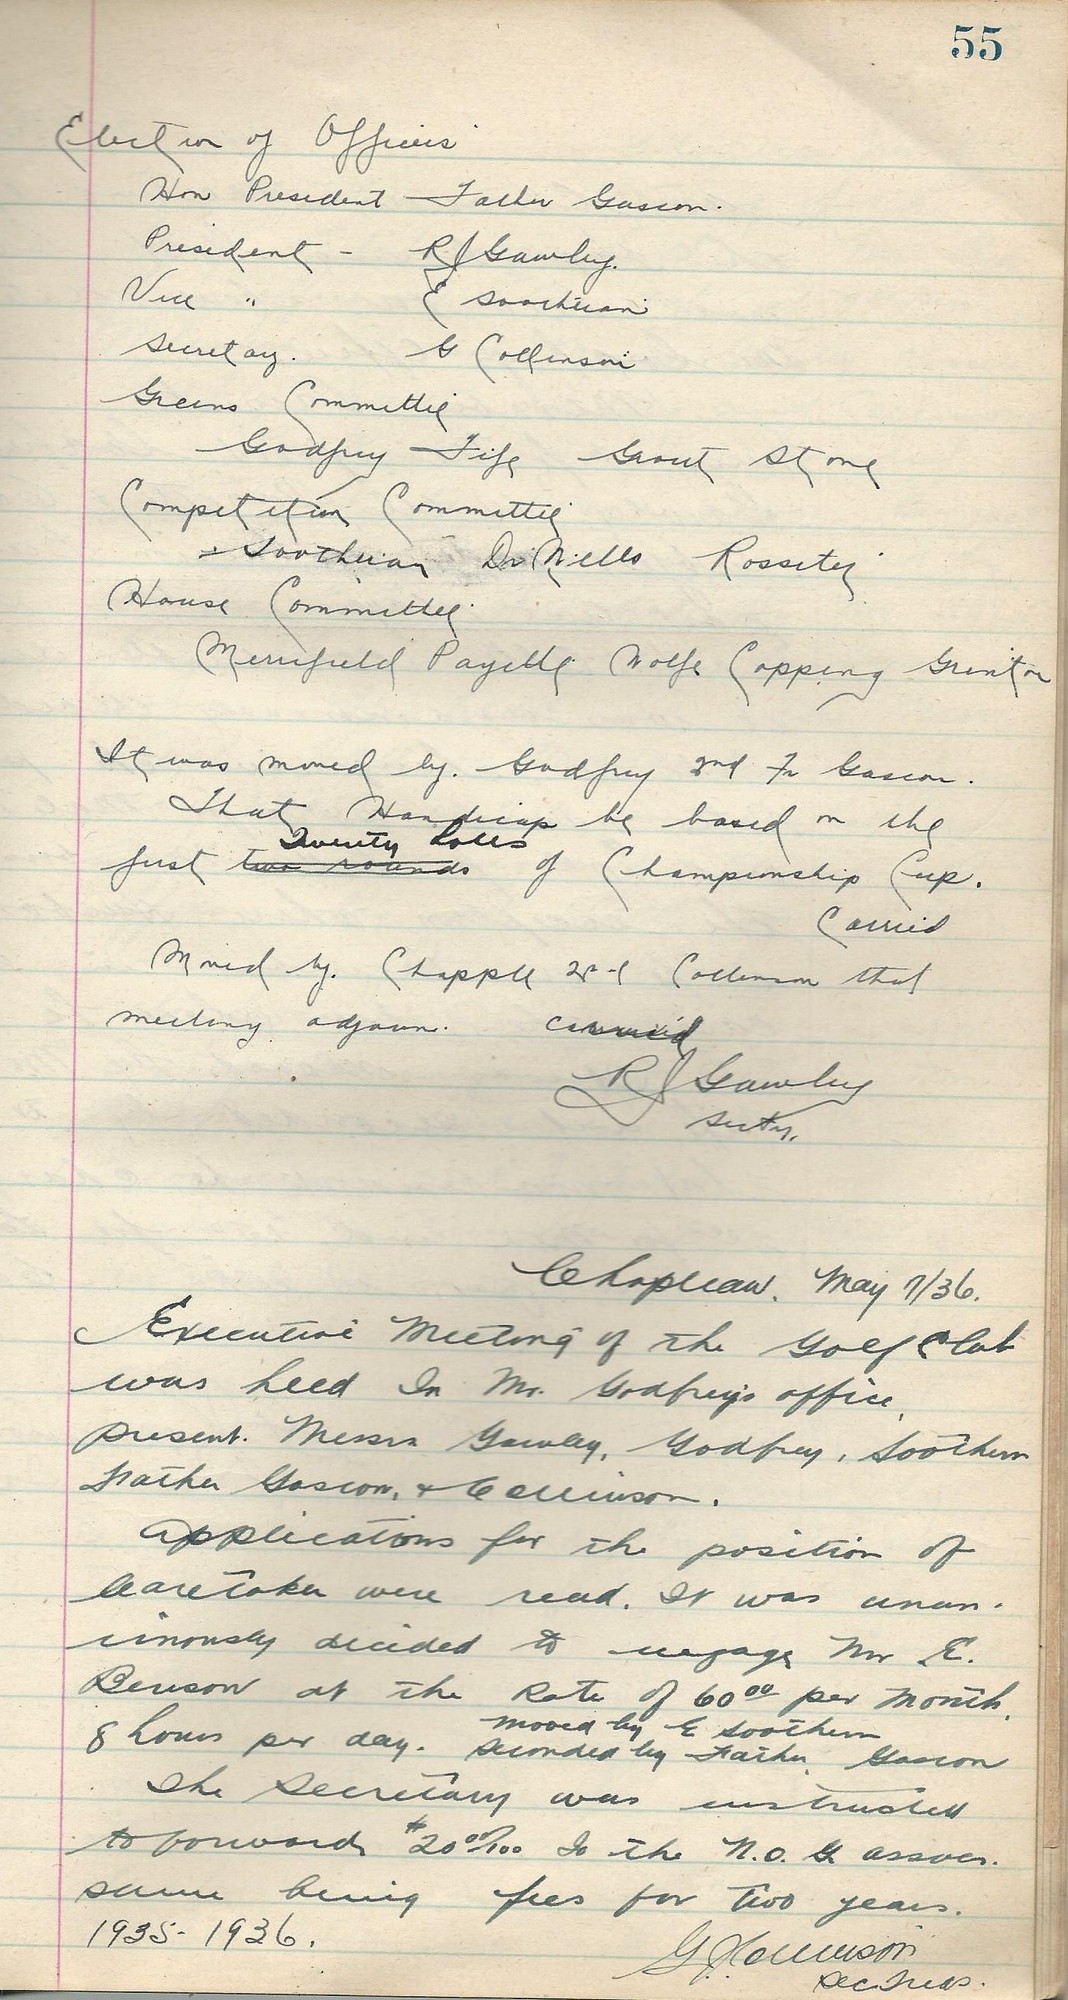 55
Election of Officers
Hon President Father Gascon.
President - R J Gawley.
Vice " E Soothern
Secretary. G Collinson
Greens Committee
Godfrey Fife Grout Stone
Competition Committee
Soothern Dr Wells Rossiter
House Committee
Merrifield Payette Wolfe Copping Grinton
It was moved by. Godfrey 2nd Fr Gascon.
That Handicap be based on the
Twenty holes
first two rounds of Championship Cup.
Carried
Moved by. Chapple 2nd Collinson that
meeting adjourn. Carried
R J Gawley
Secty.
Chapleau. May 7/36.
Executive Meeting of the Golf Club
was held In Mr. Godfrey's office.
present. Messrs Gawley, Godfrey, Soothern
Father Gascon, & Collinson.
Applications for the position of
Caretaker were read. It was unan-
imously decided to engage Mr E.
Benson at the Rate of 60 00 per Month.
Moved by E Soothern
8 hours per day. Seconded by Father Gascon
The Secretary was instructed
to forward $20 00/100 To the N.O. G assoc.
same being fees for two years.
1935-1936.
G Collinson
Sec Treas.